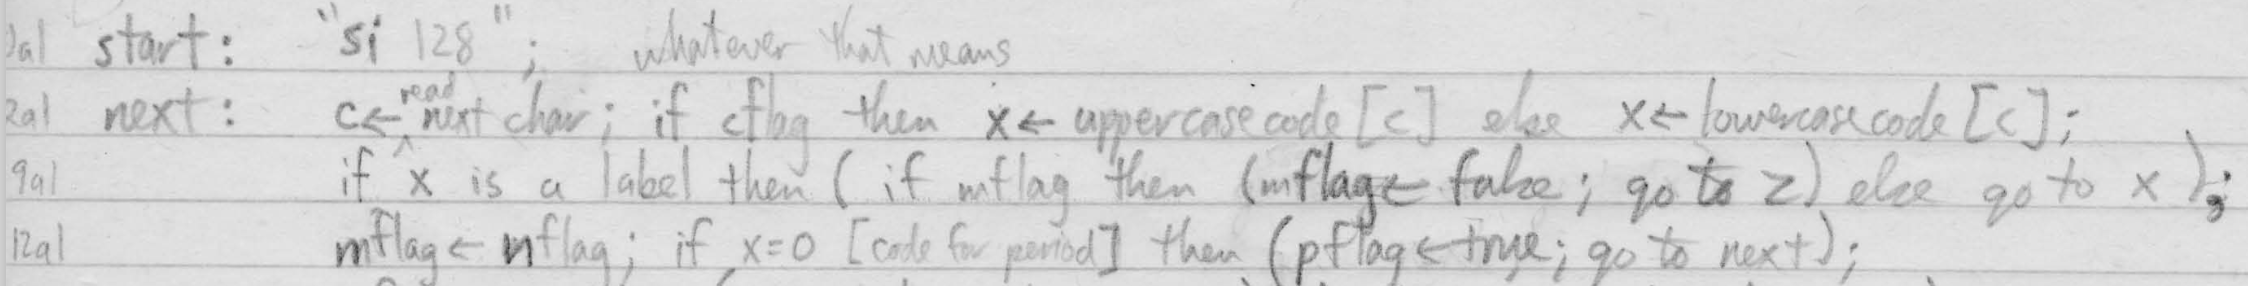 0a1 start: "si 128"; whatever that means
2a1 next: c← read next char; if cflag then x← uppercasecode[c] else x← lowercasecode[c];
9a1 if x is a label then (if mflag then (mflag← false; go to z) else go to x);
12a1 mflag← nflag; if x=0 [code for period] then (pflag← true; go to next);